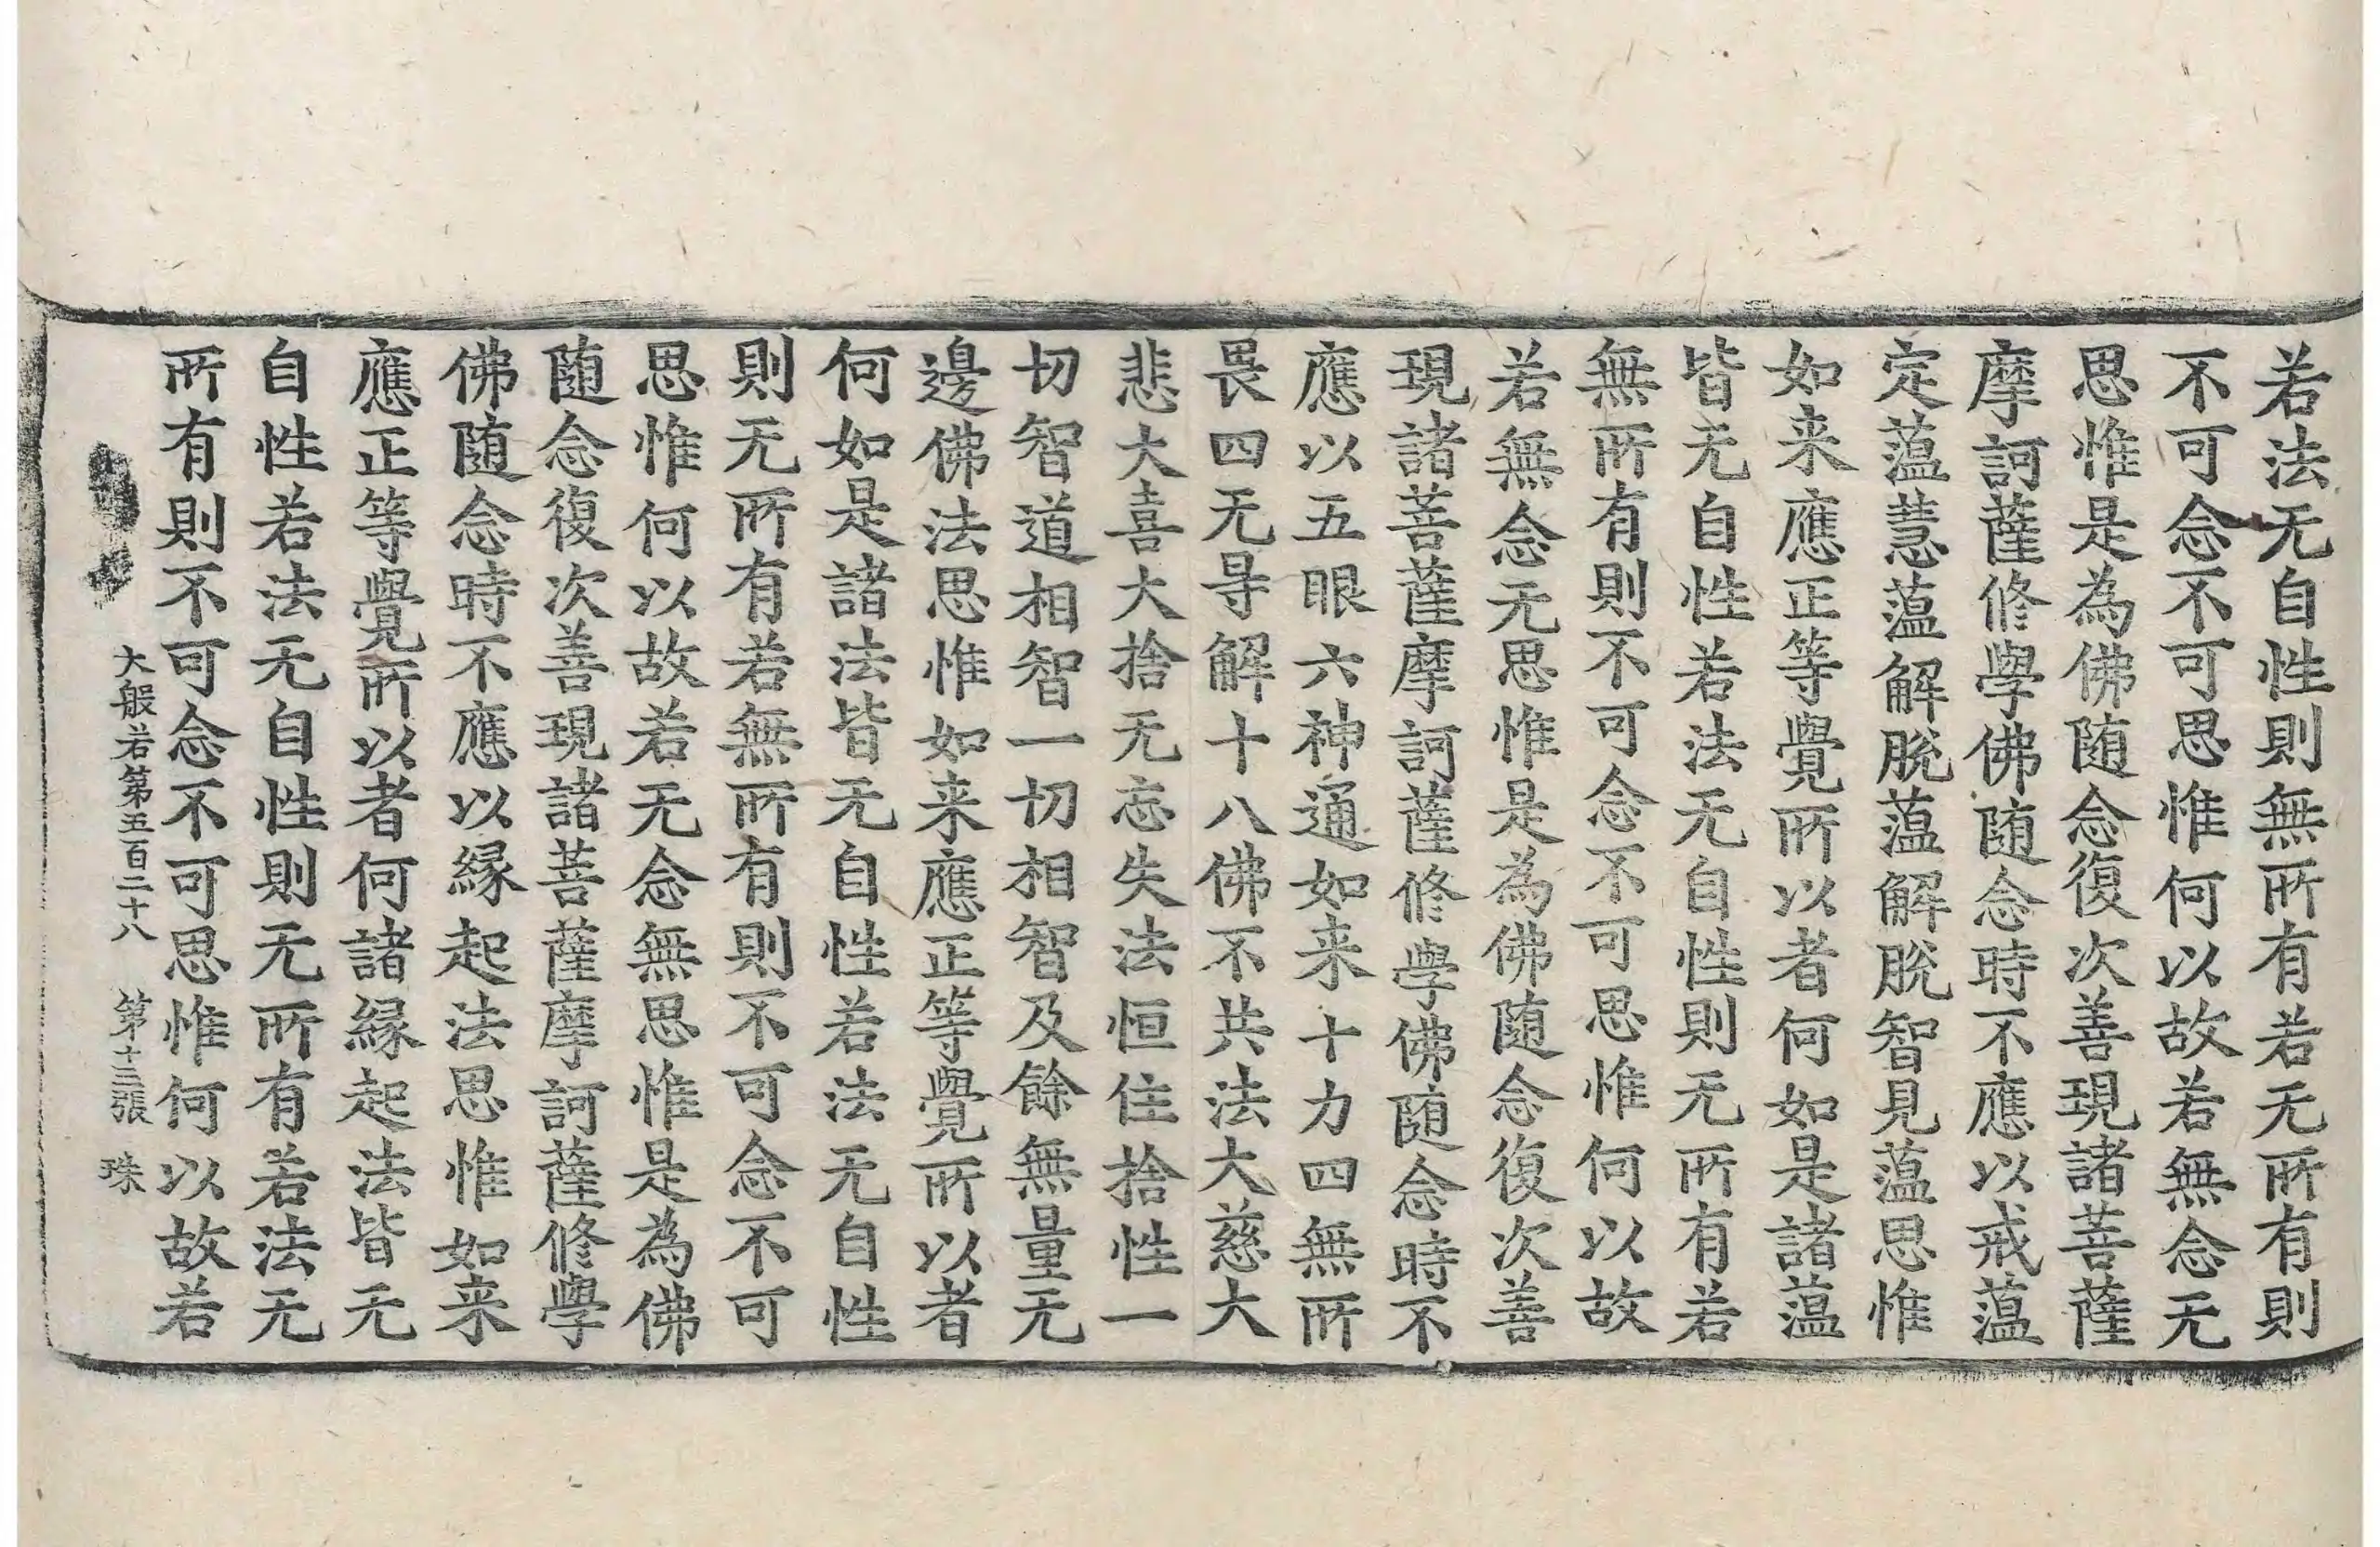 若法无自性則無所有若无所有則
不可念不可思惟何以故若無念无
思惟是為佛随念復次善現諸菩薩
摩訶薩修學佛随念時不應以戒蕴
定蕴慧蕴解脫蕴解脫智見蕴思惟
如来應正等覺所以者何如是諸蕴
皆无自性若法无自性則无所有若
無所有則不可念不可思惟何以故
若無念无思惟是為佛随念復次善
現諸菩薩摩訶薩修學佛随念時不
應以五眼六神通如来十力四無所
畏四无㝵解十八佛不共法大慈大
悲大喜大捨无忘失法恒住捨性一
切智道相智一切相智及餘無量无
邊佛法思惟如来應正等覺所以者
何如是諸法皆无自性若法无自性
則无所有若無所有則不可念不可
思惟何以故若无念無思惟是為佛
随念復次善現諸菩薩摩訶薩修學
佛随念時不應以縁起法思惟如来
應正等覺所以者何諸縁起法皆无
自性若法无自性則无所有若法无
所有則不可念不可思惟何以故若
大般若第五百二十八 第十三張 珠